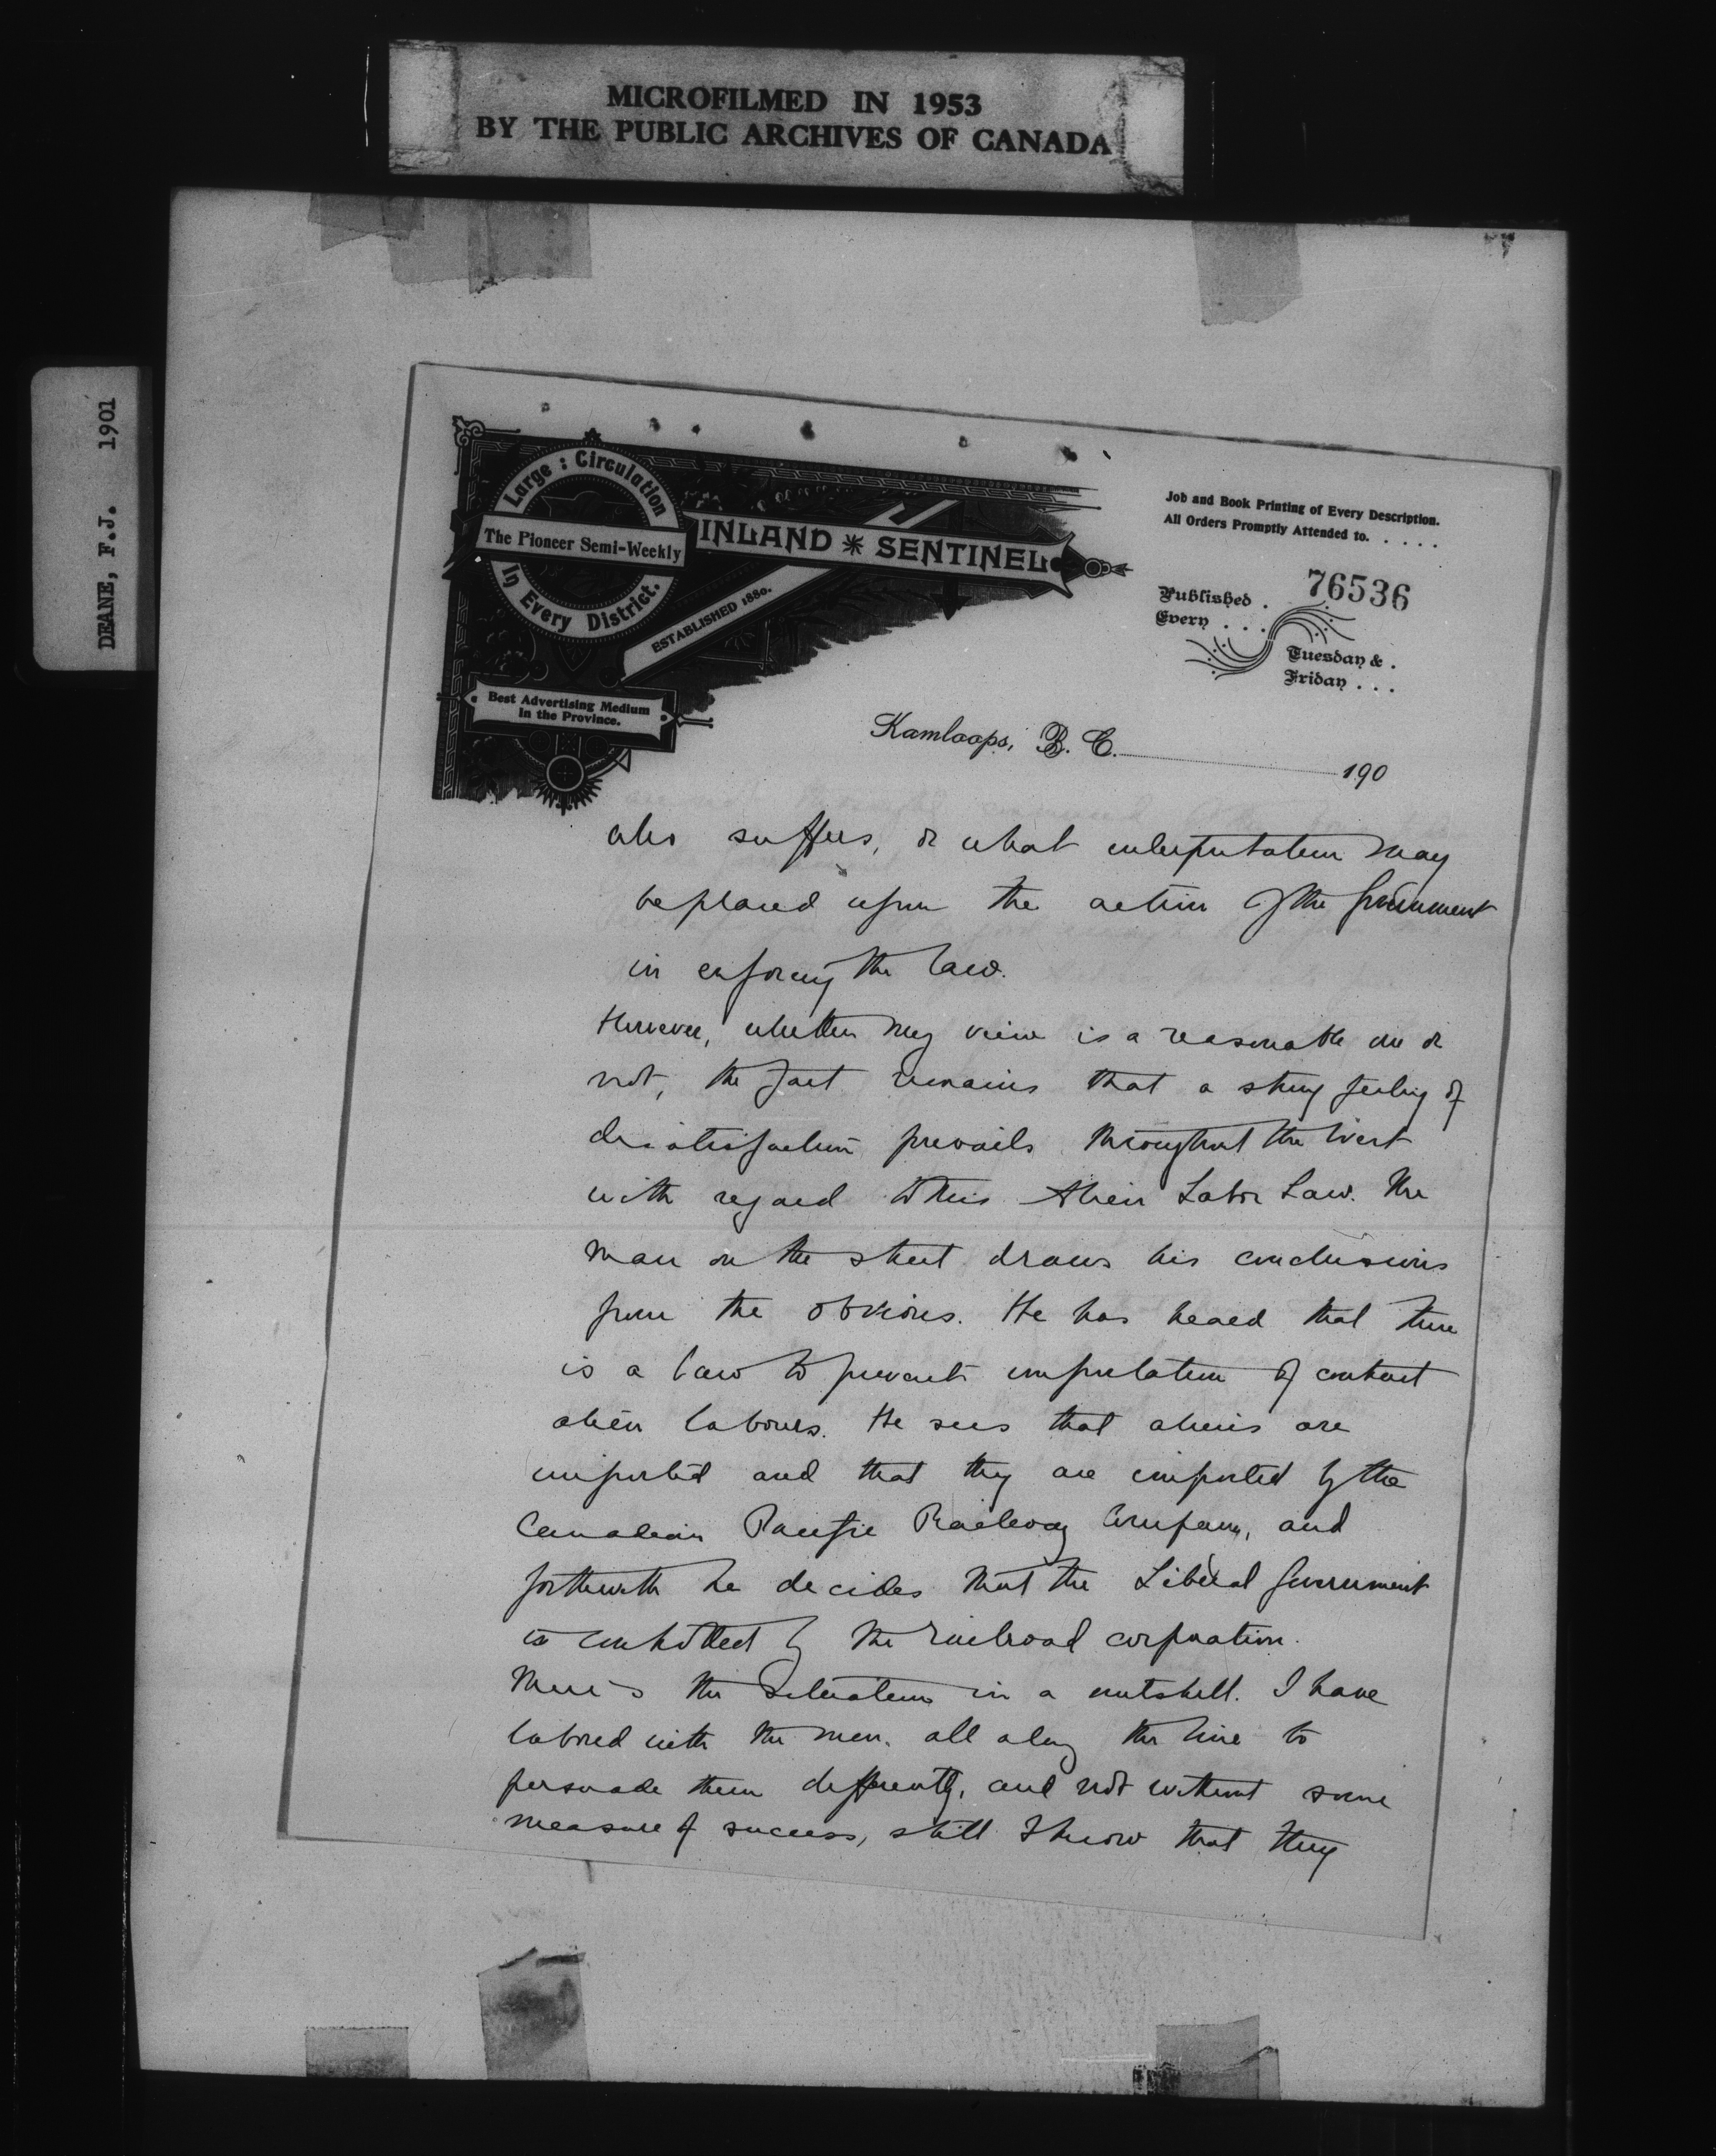 MICROFILMED IN 1953
BY THE PUBLIC ARCHIVES OF CANADA
DEANE, F.J. 1901
Large : Circulation
The Pioneer Semi-Weekly
In Every District.
INLAND SENTINEL
ESTABLISHED 1880.
Best Advertising Medium
in the Province.
Job and Book Printing of Every Description.
All Orders Promptly Attended to. . . . .
76536
Published .
Every . . .
Tuesday & .
Friday . . .
Kamloops, B. C. 190
who suffers, or what interpretation may
be placed upon the action of the Government
in enforcing the law.
However, whether my view is a reasonable one or
not, the fact remains that a strong feeling of
dissatisfaction prevails throughout the West
with regard to this Alien Labor Law. The
man on the street draws his conclusions
from the obvious. He has heard that there
is a law to prevent importation of contract
alien labourers. He sees that aliens are
imported and that they are imported by the
Canadian Pacific Railway Company, and
forthwith he decides that the Liberal Government
is controlled by the railroad corporation.
There is the situation in a nutshell. I have
labored with the men all along the line to
persuade them differently, and not without some
measure of success, still I know that they